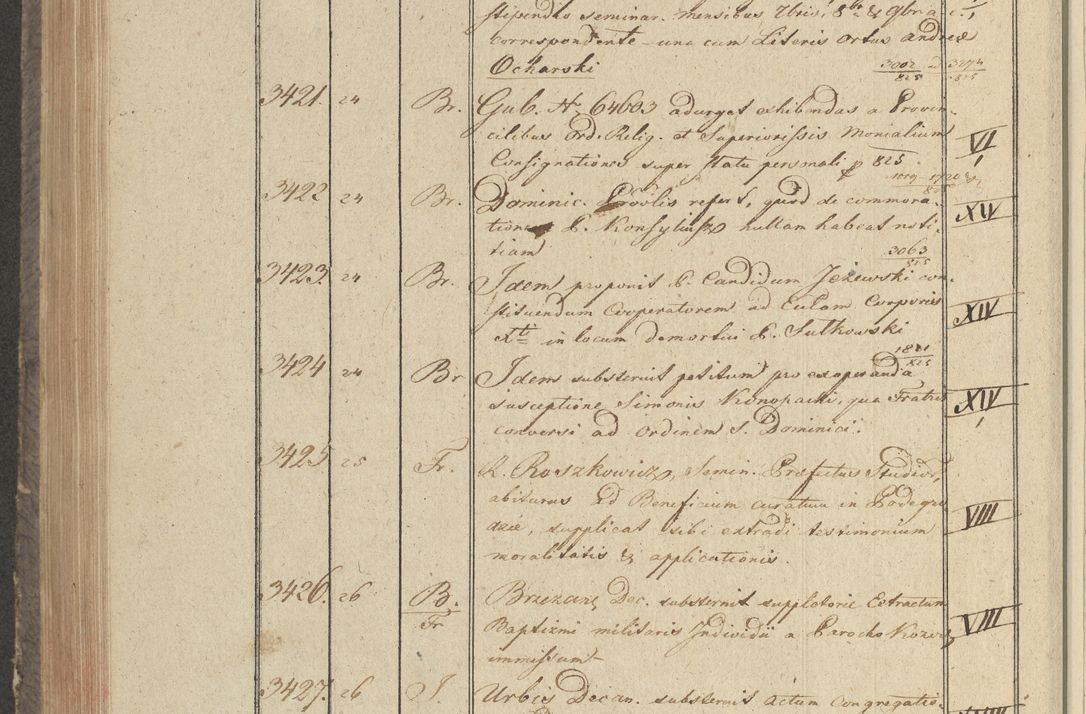 stipendio seminar. mensibus 7bris, 8b. & 9bris
correspondente una cum Literis ortus Andreæ
Ocharski 3002 3274
825 825
3421. 24 Br. Gub. N. 64603 adurget exhibendas a Provin-
cialibus Ord. Relig. et Superiorissis Monialium VI
Consignationes super statu personali 825.
3422 24 Br. Dominic. Prov̄lis refert, quod de commora- XIV
tione P. Konsyliusz nullam habeat noti-
tiam 3063
825
3423. 24 Br. Idem proponit P. Candidum Jeżewski con-
stituendum Cooperatorem ad Culam Corporis XIV
Xti in locum demortui P. Sulkowski
3424 24 Br Idem substernit petitum pro exoperanda 825
susceptione Simonis Konopacki, qua Fratris XIV
conversi ad Ordinem S. Dominici.
3425 25 Fr. R. Roszkowicz, Semin. Præfectus Studior,
abiturus ad Beneficium curatum in Podegro
dzie, supplicat sibi extradi testimonium VIII
moralitatis & applicationis.
3426. 26 B. Brzezan. Dec. substernit suppletorie Extractum
Fr Baptismi militaris Individii a Parocho Kozov. VIII
immissum
3427. 26 J. Urbis Decan. substernit actum congregatio-